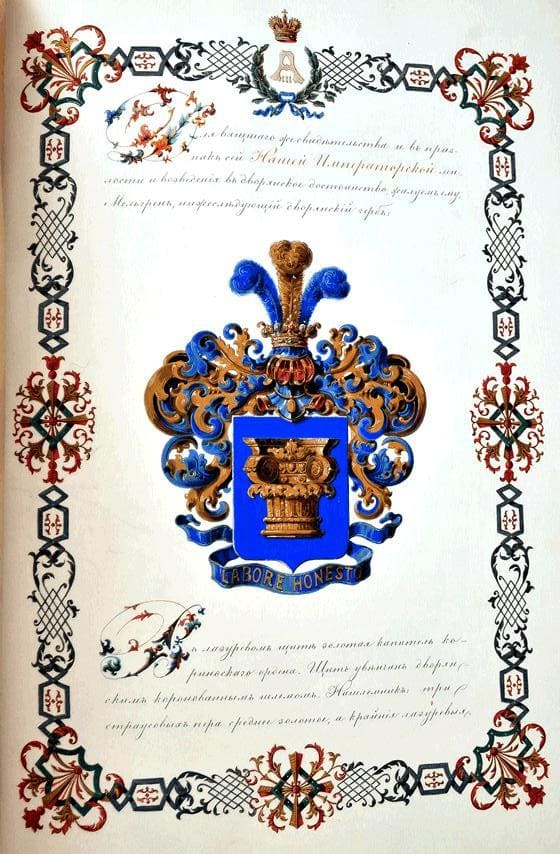 А III
Для вящшаго же свидѣтельства и въ приз-
накъ сей Нашей Императорской ми-
лости и возведенія въ дворянское достоинство, жалуемъ ему,
Мельгренъ, нижеслѣдующій дворянскій гербъ:
LABORE HONESTO
Въ лазуревомъ щитѣ золотая капитель ко-
ринѳскаго ордена. Щитъ увѣнчанъ дворян-
скимъ коронованнымъ шлемомъ. Нашлемникъ: три
страусовыхъ пера среднее золотое, а крайнія лазуревыя,